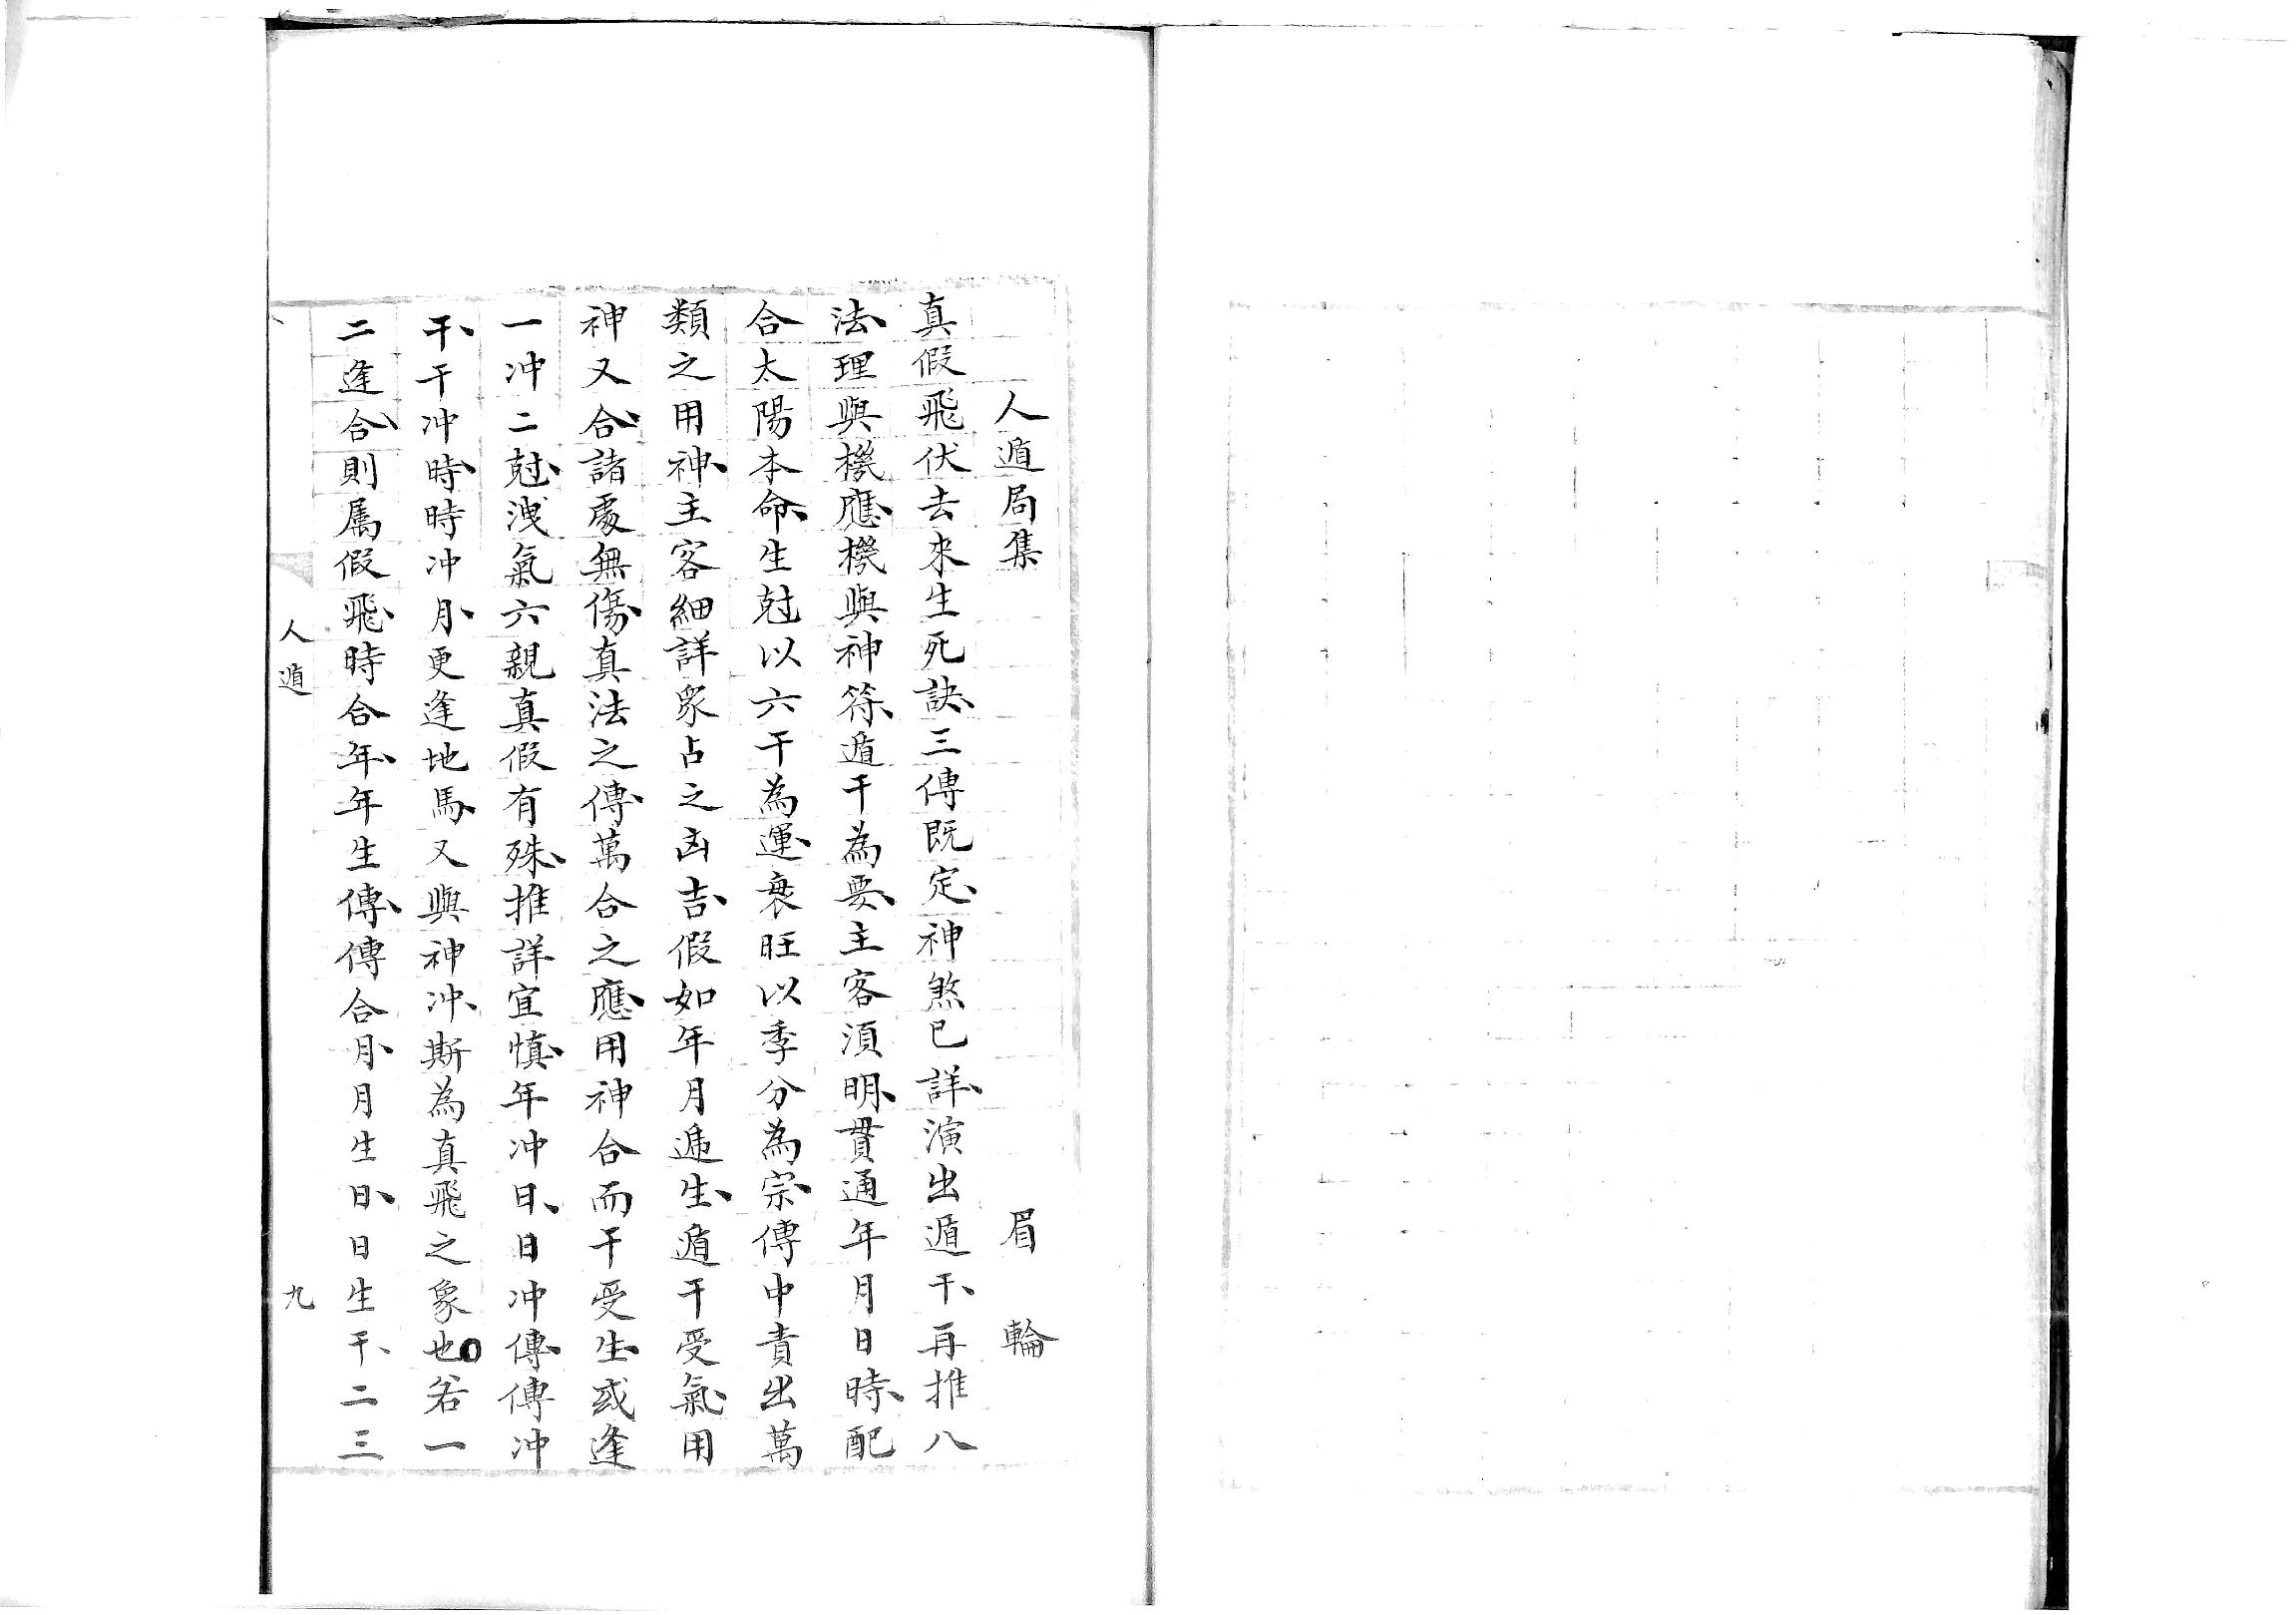 人遁局集　眉輪
真假飛伏去來生死訣、三傳既定、神煞已詳、演出遁干、再推八
法、理與機應、機與神符、遁干為要、主客須明、貫通年月日時、配
合太陽本命、生尅以六干為運、衰旺以季分為宗、傳中責出萬
類之用神、主客細詳象占之凶吉、假如年月遞生、遁干受氣、用
神又合、諸處無傷、真法之傳、萬合之應、用神合而干受生、或逢
一冲二尅、洩氣六親真假有殊、推詳宜慎、年冲日、日冲傳、傳冲
干、干冲時、時冲月、更逢地馬、又與神冲、斯為真飛之象也○若一
二逢合、則属假飛、時合年、年生傳、傳合月、月生日、日生干、二三
人遁
九